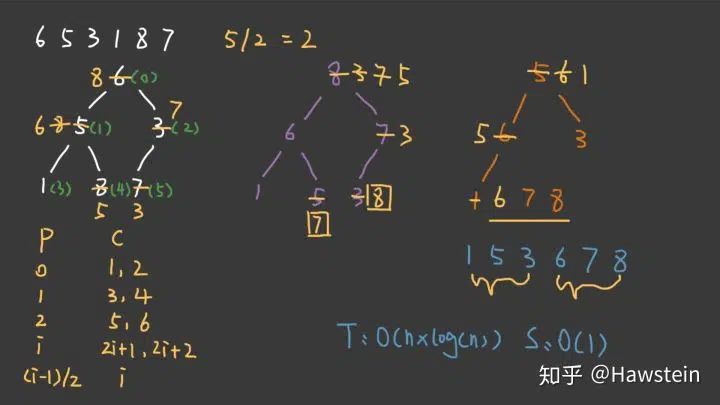 6 5 3 1 8 7
5/2 = 2
8 6(0)
6 8 5(1)
7
3(2)
1(3)
8(4)
7(5)
5
3
P C
0 1, 2
1 3, 4
2 5, 6
i 2i+1, 2i+2
(i-1)/2 i
8 3 7 5
6
7 3
1
5
3 8
7
5 6 1
5 6
3
+ 6 7 8
1 5 3 6 7 8
T: O(n×log(n)) S: O(1)
知乎 @Hawstein